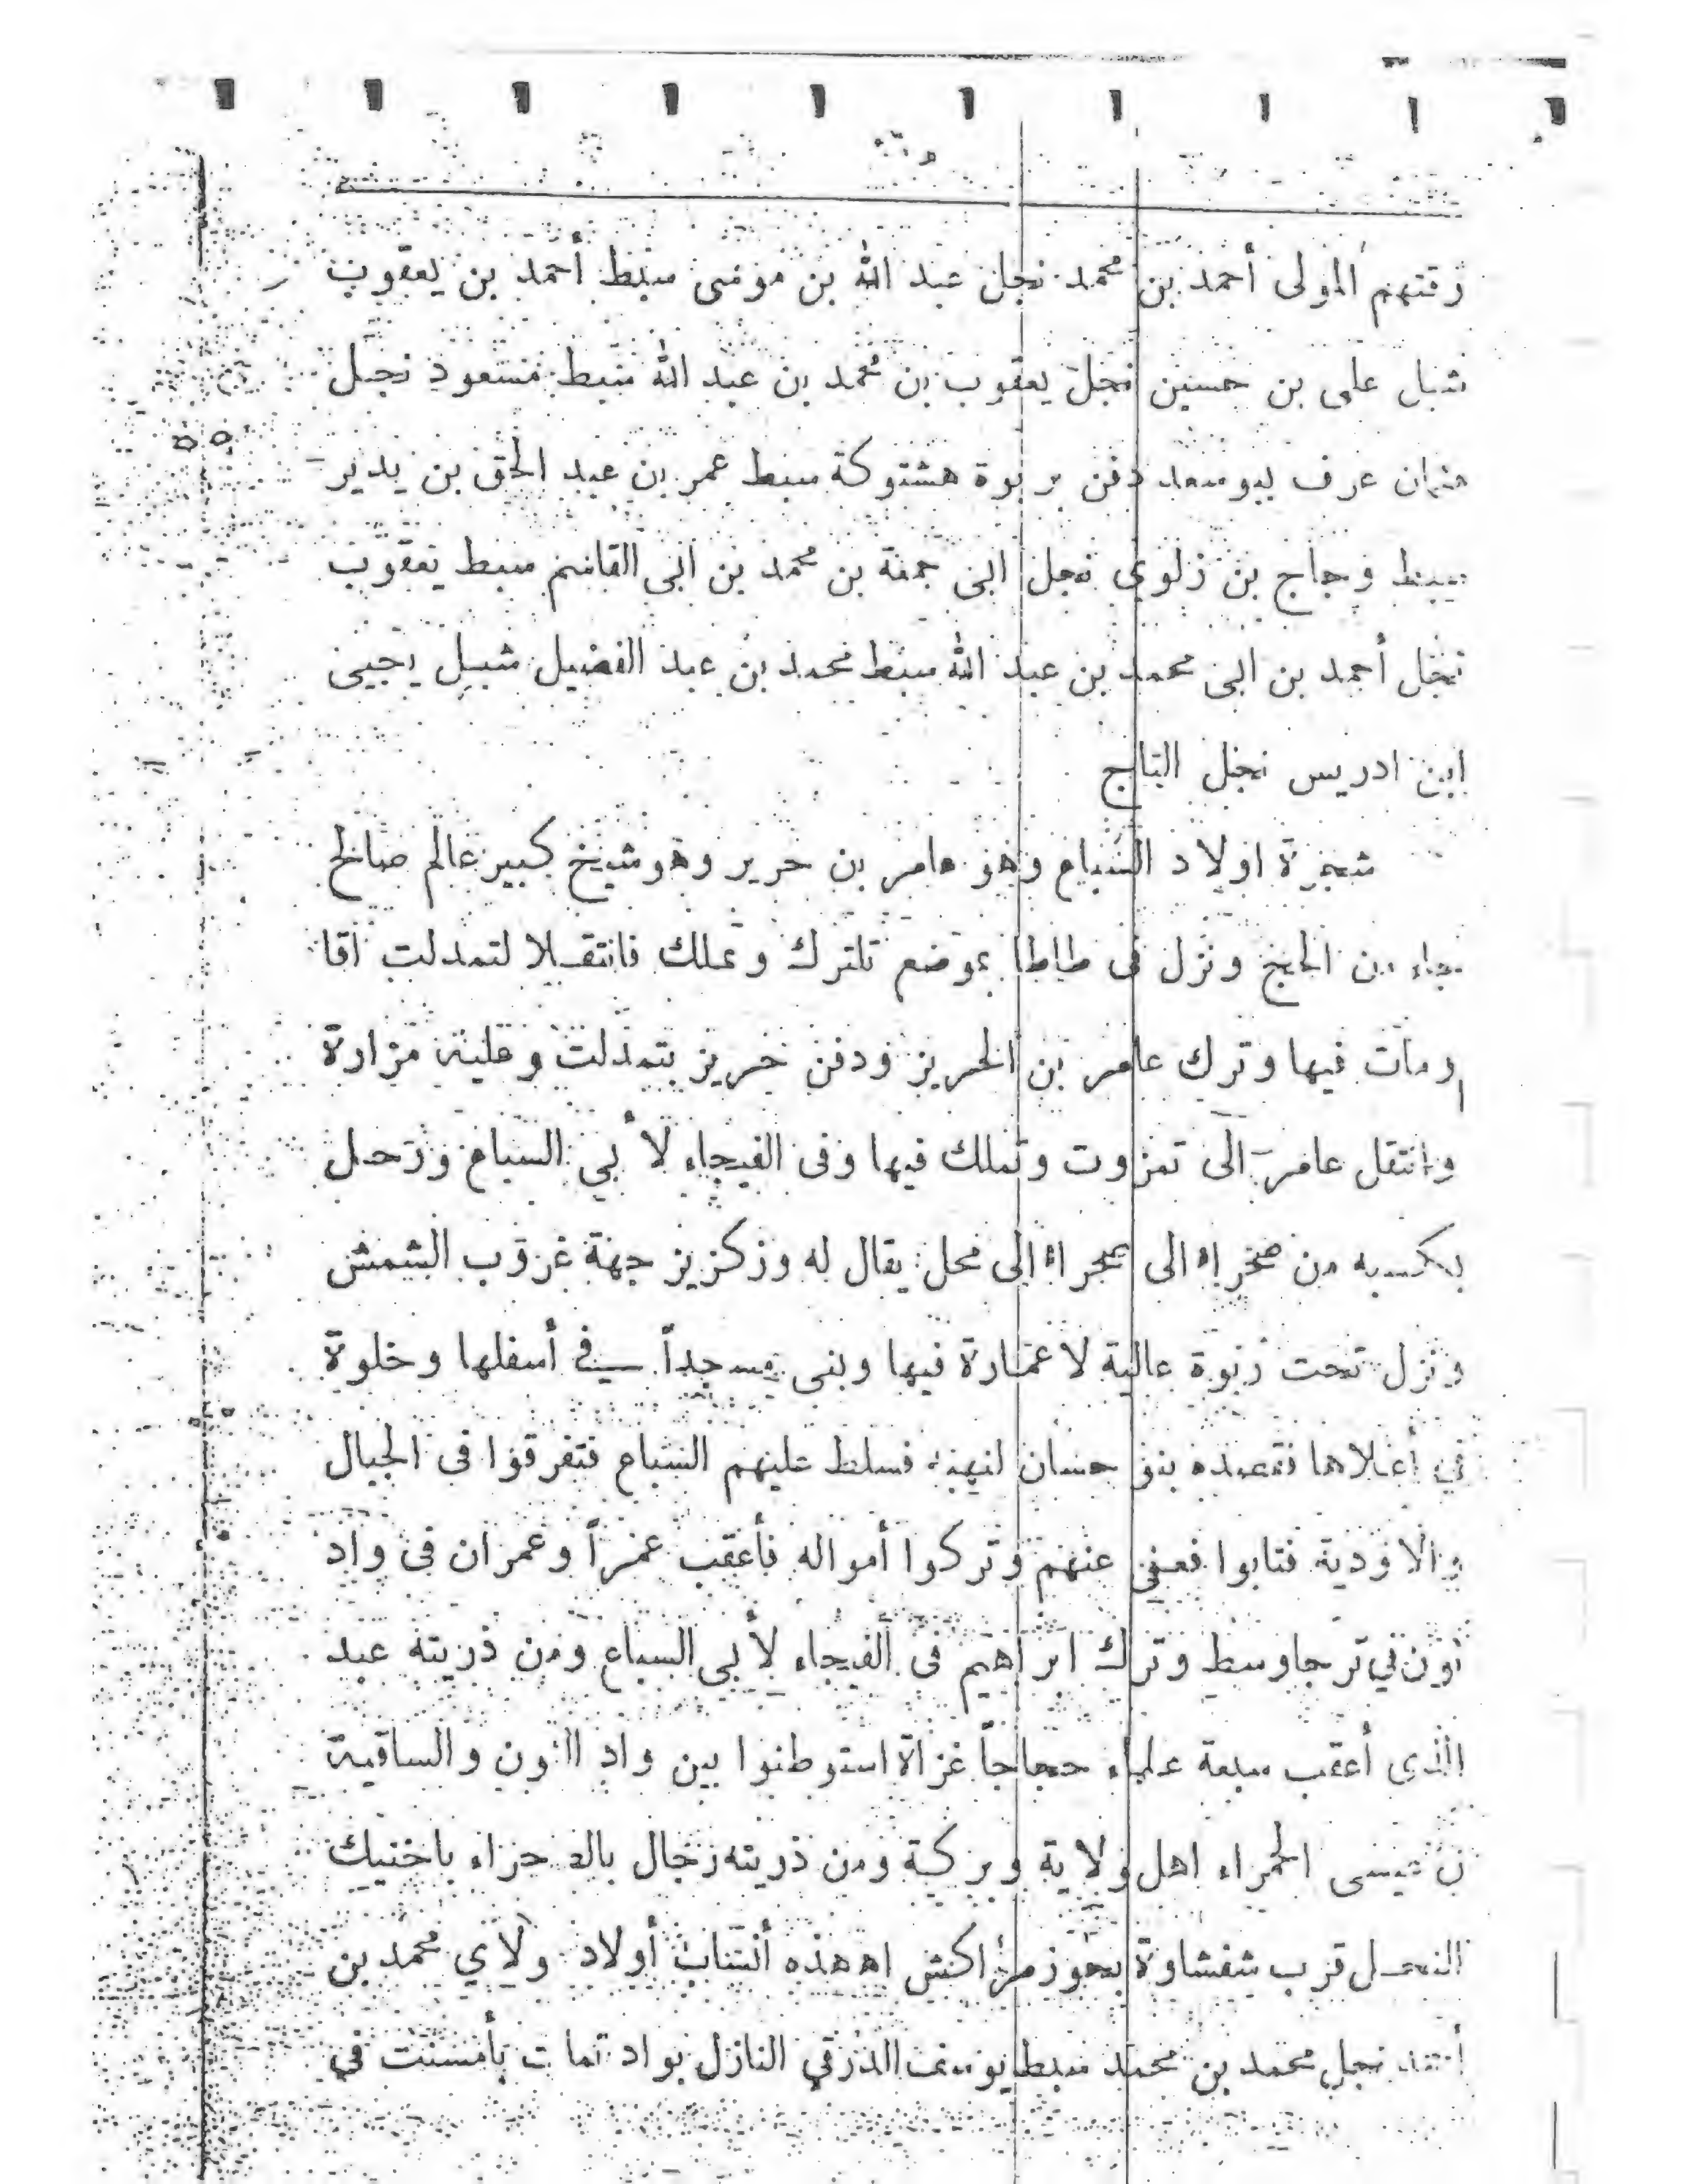 زقتهم المولى أحمد بن محمد نجل عبد الله بن موسى سبط أحمد بن يعقوب
شبل على بن حسين نجل يعقوب بن محمد بن عبد الله سبط مسعود نجل
عثمان عرف ببوسعد دفن بربوة هشتوكة سبط عمر بن عبد الحق بن يدير
سبط وجاج بن زلوى نجل ابى جمعة بن محمد بن ابى القاسم سبط يعقوب
نجل أحمد بن ابى محمد بن عبد الله سبط محمد بن عبد الفضيل شبل يحيى
ابن ادريس نجل التاج
شجرة اولاد السباع وهو عامر بن حرير وهو شيخ كبير عالم صالح
جاء من الحج ونزل فى طاطا بموضع تلترك وتملك فانتقلا لتمدلت أقا
ومات فيها وترك عامر بن الحريز ودفن حريز بتمدلت وعليه مزارة
وانتقل عامر الى تمزوت وتملك فيها وفى الفيجاء لأبي السباع ورحل
بكسبه من صخراء الى صحراء الى محل يقال له وزكزيز جهة غروب الشمس
ونزل تحت ربوة عالية لا عمارة فيها وبنى مسجداً في أسفلها وخلوة
في أعلاها فتعمده بنو حسان لنهبه فسلط عليهم السباع فتفرقوا فى الجبال
والاودية فتابوا فعفى عنهم وتركوا أمواله فأعقب عمراً وعمران فى واد
نون في ترجاوسط وترك ابراهيم فى الفيجاء لأبى السباع ومن ذريته عبد
الذى أعقب سبعة علماء حجاجاً غزاة استوطنوا بين واد النون والساقية
بن عيسى الحمراء اهل ولاية وبركة ومن ذريته رجال باخنيك
النحل قرب شفشاوة بحوز مراكش اه هذه أنساب أولاد ولاي محمد بن
أحمد نجل محمد بن محمد سبط يوسف الدرقي النازل بواد تمات بأمسنت في